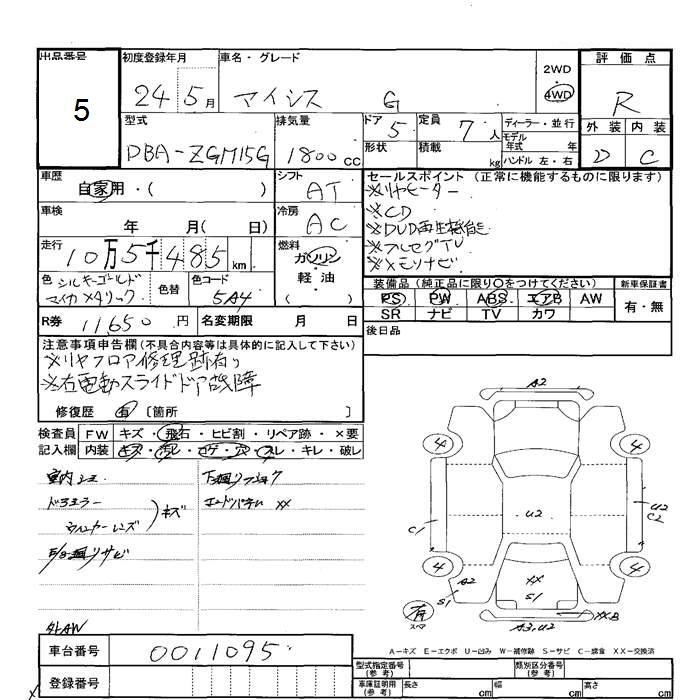 出品番号
5
初度登録年月
24 5月
車名・グレード
マイシス G
2WD
・
4WD
評価点
R
型式
DBA-ZGM15G
排気量
1800cc
ドア
5
定員
7人
形状
積載
kg
ディーラー・並行
モデル年式 年
ハンドル 左・右
外装 内装
D C
車歴
自家用・( )
シフト
AT
車検
年 月( 日)
冷房
AC
走行
10万5千485km
燃料
ガソリン
・
軽油
( )
色 シルキーゴールド
マイカメタリック
色替
色コード
5A4
R券 11,650円
名変期限 月 日
セールスポイント(正常に機能するものに限ります)
※リヤヒーター
※CD
※DVD再生機能
※フルセグTV
※メモリナビ
装備品(純正品に限り〇をつけてください)
新車保証書
PS PW ABS エアB AW
SR ナビ TV カワ
有・無
後日品
注意事項申告欄(不具合内容等は具体的に記入して下さい)
※リヤフロア修理跡有り
※右電動スライドドア故障
修復歴 有 〔箇所 〕
検査員 FW キズ・飛石・ヒビ割・リペア跡・×要
記入欄 内装 キズ・汚レ・コゲ・穴・スレ・キレ・破レ
室内シミ
ドアミラー
ウィンカーレンズ
)キズ
下廻リ
エンドパネル ××
サビ
外AW
A2
4
4
C1
U2
U2
C2
4
4
A2
S1
××
S1
有
スペア
××B
A3,U2
A-キズ E-エクボ U-凹み W-補修跡 S-サビ C-腐食 XX-交換済
車台番号 0011095
登録番号
型式指定番号
(参考)
類別区分番号
(参考)
車庫証明用
(参考)
長さ cm 幅 cm 高さ cm